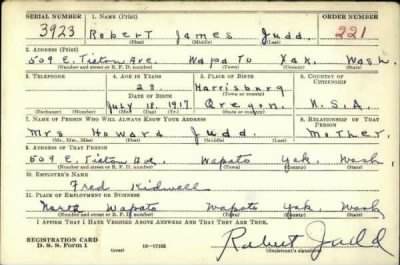 SERIAL NUMBER 1. NAME (Print) ORDER NUMBER
3923 Robert James Judd. 221
(First) (Middle) (Last)
2. ADDRESS (Print)
509 E. Tieton Ave. Wapato Yak. Wash.
(Number and street or R. F. D. number) (Town) (County) (State)
3. TELEPHONE 4. AGE IN YEARS 5. PLACE OF BIRTH 6. COUNTRY OF CITIZENSHIP
23 Harrisburg
DATE OF BIRTH (Town or county)
July 18, 1917 Oregon. U.S.A.
(Exchange) (Number) (Mo.) (Day) (Yr.) (State or country)
7. NAME OF PERSON WHO WILL ALWAYS KNOW YOUR ADDRESS 8. RELATIONSHIP OF THAT PERSON
Mrs Howard Judd. Mother.
(Mr., Mrs., Miss) (First) (Middle) (Last)
9. ADDRESS OF THAT PERSON
509 E. Tieton Ave. Wapato Yak. Wash
(Number and street or R. F. D. number) (Town) (County) (State)
10. EMPLOYER'S NAME
Fred Kidwell
11. PLACE OF EMPLOYMENT OR BUSINESS
North Wapato Wapato Yak. Wash
(Number and street or R. F. D. number) (Town) (County) (State)
I AFFIRM THAT I HAVE VERIFIED ABOVE ANSWERS AND THAT THEY ARE TRUE.
REGISTRATION CARD
D. S. S. Form 1 (over) 16—17105
Robert Judd
(Registrant's signature)